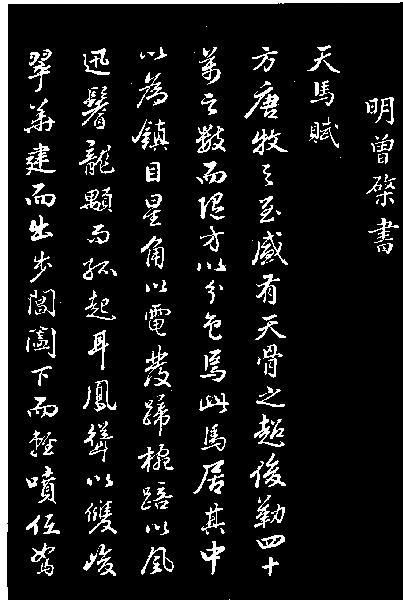 明曾棨書
天馬賦
方唐牧之至盛有天骨之超俊勒四十
萬之數而隨方以分色焉此馬居其中
以為鎮目星角以電發蹄椀踣以風
迅鬐龍顒而孤起耳鳳聳以雙峻
翠華建而出步閶闔下而輕噴低駑